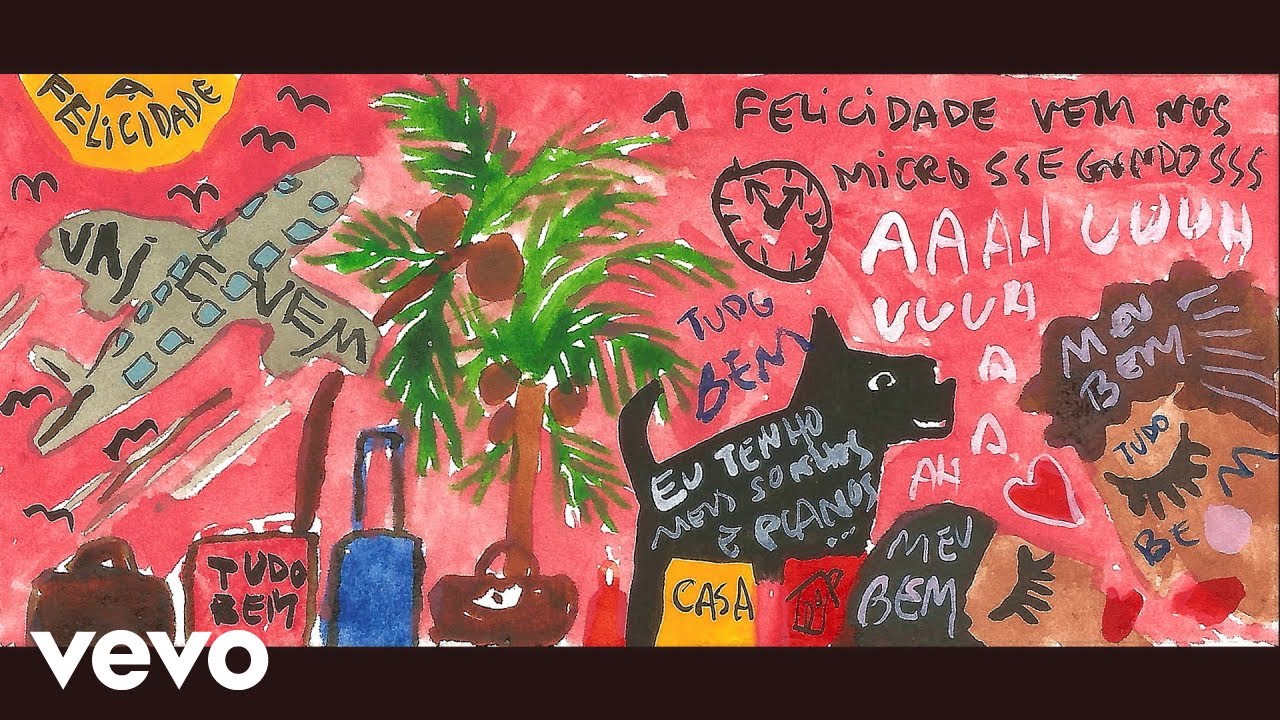 A
FELICIDADE
VAI E VEM
FELICIDADE VEM NOS
MICROSSEGUNDOSSS
AAAH UUUUH
UUUUH
A
A
A
AH
TUDO
BEM
EU TENHO
MEUS SONHOS
E PLANOS
...
MEU
BEM
TUDO
BEM
TUDO
BEM
CASA
MEU
BEM
vevo